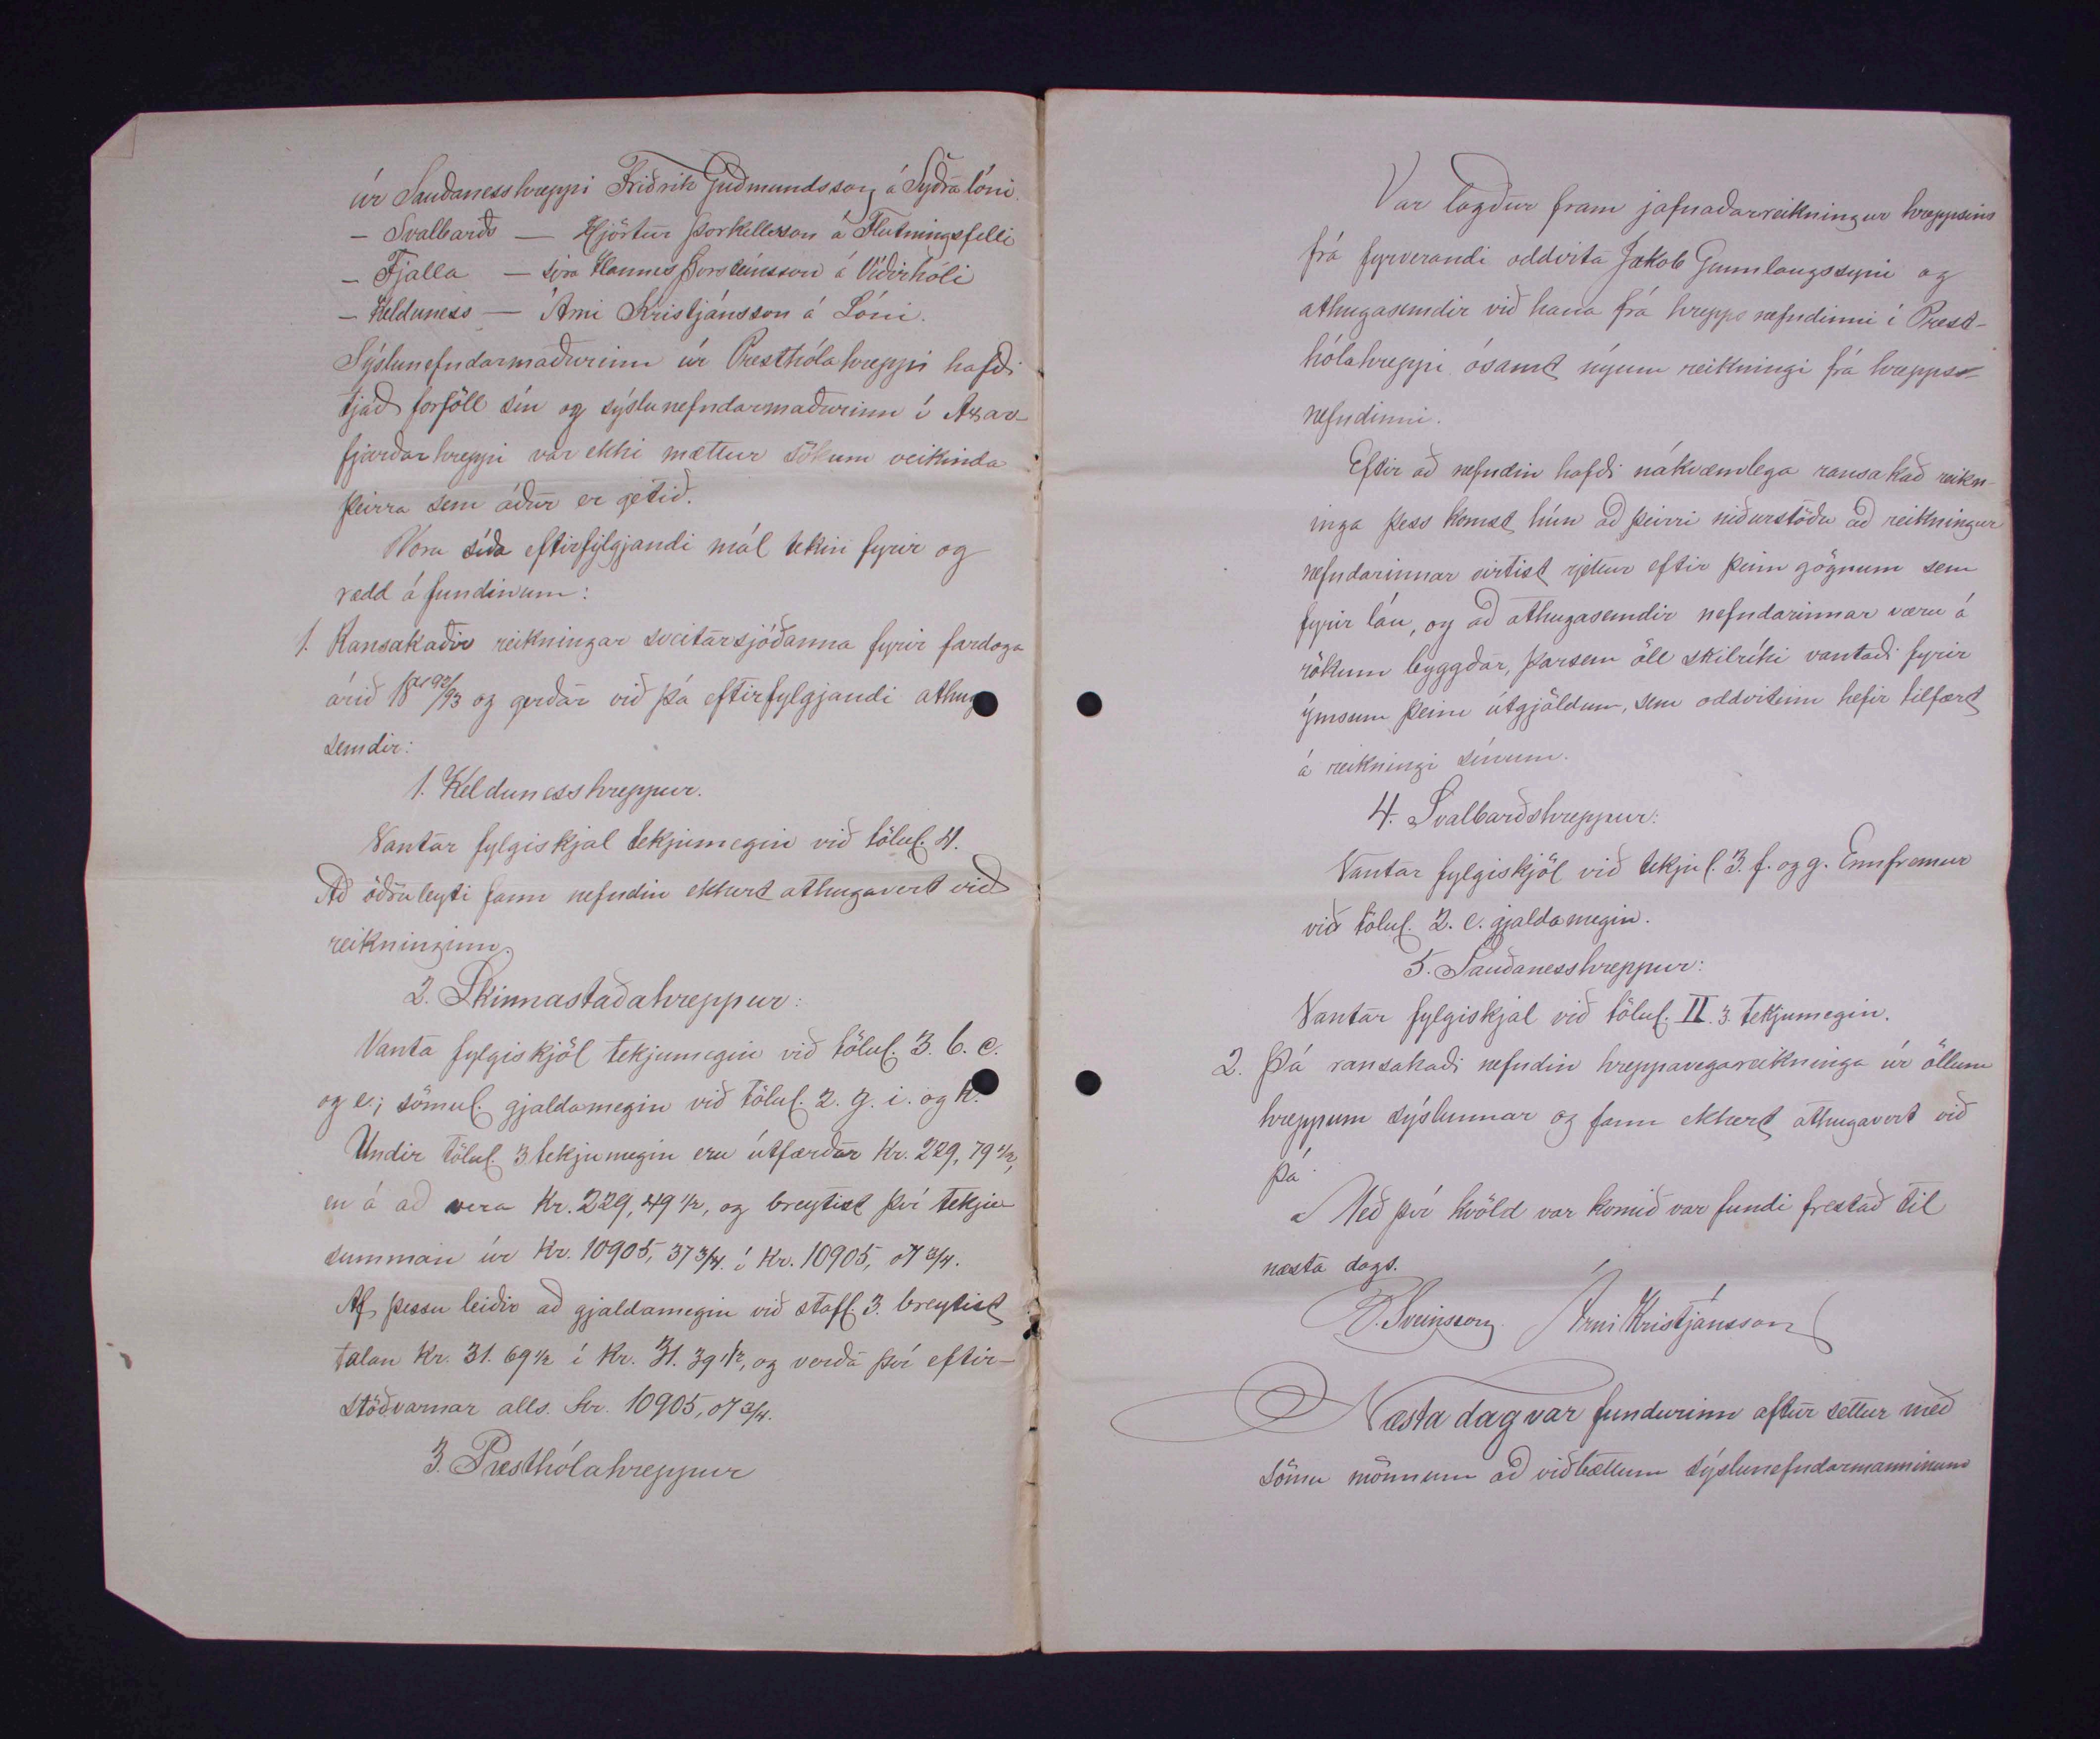 úr Sauðanesshreppi Friðrik Guðmundsson á Syðralóni.
– Svalbarðs — Hjörtur Þorkellsson á Flutningsfelli
– Fjalla — síra Hannes Þorsteinsson á Víðirhóli
– Kelduness — Árni Kristjánsson á Lóni.
Sýslunefndarmaðurinn úr Presthólahreppi hafði
tjáð forföll sín og sýslunefndarmaðurinn í Axar-
fjarðarhreppi var ekki mættur sökum veikinda
þeirra sem áður er getið.
Vóru síða eftirfylgjandi mál tekin fyrir og
rædd á fundinum:
1. Ransakaðir reikningar sveitarsjóðanna fyrir fardaga
árið 1892/93 og gerðar við þá eftirfylgjandi athuga
semdir:
1. Keldunesshreppur.
Vantar fylgiskjal tekjumegin við tölul. 4.
Að öðru leyti fann nefndin ekkert athugavert við
reikninginn.
2. Skinnastaðahreppur:
Vanta fylgiskjöl tekjumegin við tölul. 3. b. c.
og e; sömul. gjaldamegin við tölul. 2. g. i. og k.
Undir tölul. 3 tekjumegin eru útfærðar Kr. 229, 79 1/2,
en á að vera Kr. 229, 49 1/2, og breytist því tekju
summan úr Kr. 10905, 37 3/4. í Kr. 10905, 07 3/4.
Af þessu leiðir að gjaldamegin við stafl. 3. breytist
talan Kr. 31. 69 1/2 í Kr. 31. 39 1/2, og verða því eftir-
stöðvarnar alls. Kr. 10905, 07 3/4.
3. Presthólahreppur
Var lagður fram jafnaðarreikningur hreppsins
frá fyrverandi oddvita Jakob Gunnlaugssyni og
athugasemdir við hana frá hreppsnefndinni í Prest-
hólahreppi ásamt nýum reikningi frá hrepps-
nefndinni.
Eftir að nefndin hafði nákvæmlega ransakað reikn-
inga þess komst hún að þeirri niðurstöðu að reikningur
nefndarinnar virtist rjettur eftir þeim gögnum sem
fyrir láu, og að athugasemdir nefndarinnar væru á
rökum byggðar, þarsem öll skilríki vantaði fyrir
ýmsum þeim útgjöldum, sem oddvitinn hefir tilfært
á reikningi sínum.
4. Svalbarðshreppur:
Vantar fylgiskjöl við tekjul. 3. f. og g. Ennfremur
við tölul. 2. c. gjaldamegin.
5. Sauðanesshreppur:
Vantar fylgiskjal við tölul. II. 3. tekjumegin.
2. Þá ransakaði nefndin hreppavegareikninga úr öllum
hreppum sýslunnar og fann ekkert athugavert við
þá.
Með því kvöld var komið var fundi frestað til
næsta dags.
B. Sveinsson. Árni Kristjánsson
Næsta dag var fundurinn aftur settur með
sömu mönnum að viðbættum sýslunefndarmanninum